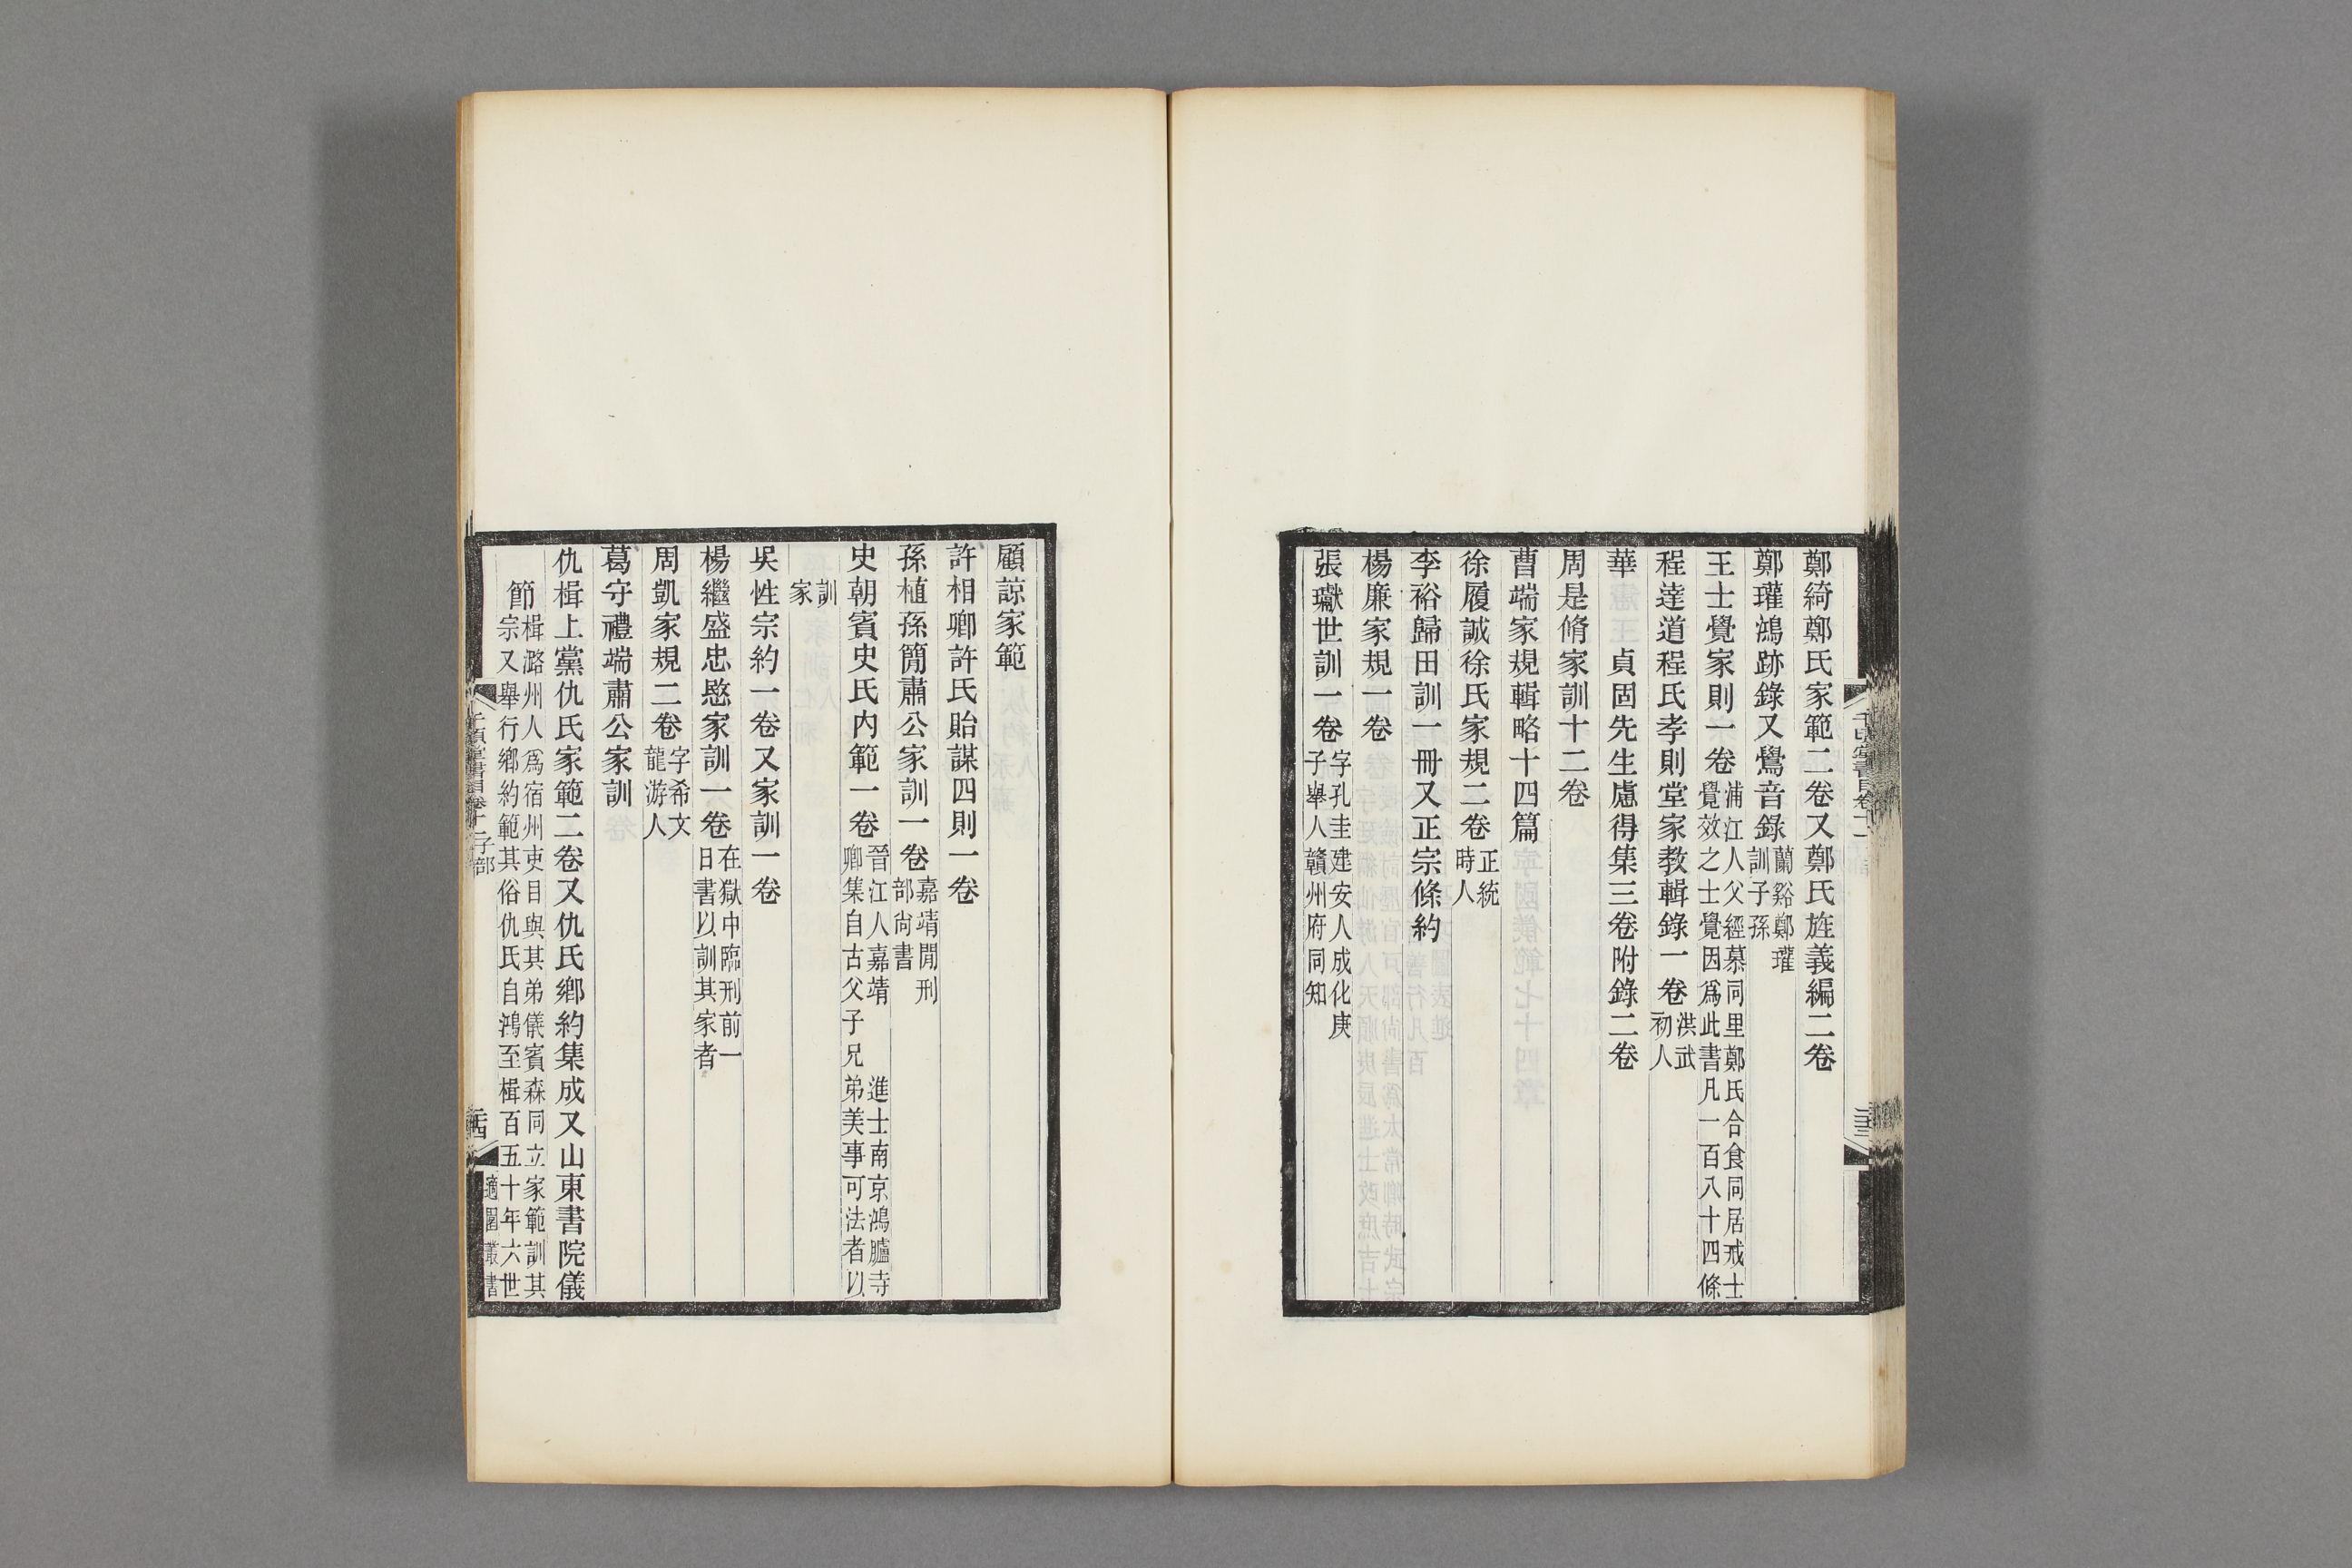 鄭綺鄭氏家範二卷又鄭氏旌義編二卷
鄭瓘鴻跡錄又鶯音錄蘭谿鄭瓘訓子孫
王士覺家則一卷浦江人父經慕同里鄭氏合食同居戒士覺效之士覺因爲此書凡一百八十四條
程達道程氏孝則堂家教輯錄一卷洪武初人
華　貞固先生慮得集三卷附錄二卷
周是脩家訓十二卷
曹端家規輯略十四篇
徐履誠徐氏家規二卷正統時人
李裕歸田訓一冊又正宗條約
楊廉家規一卷
張瓛世訓一卷字孔圭建安人成化庚子舉人贛州府同知
顧諒家範
許相卿許氏貽謀四則一卷
孫植孫簡肅公家訓一卷嘉靖閒刑部尙書
史朝賓史氏內範一卷晉江人嘉靖　進士南京鴻臚寺卿集自古父子兄弟美事可法者以
訓家
吳性宗約一卷又家訓一卷
楊繼盛忠愍家訓一卷在獄中臨刑前一日書以訓其家者
周凱家規二卷字希文龍游人
葛守禮端肅公家訓
仇楫上黨仇氏家範二卷又仇氏鄉約集成又山東書院儀
節楫潞州人爲宿州吏目與其弟儀賓森同立家範訓其宗又舉行鄉約範其俗仇氏自鴻至楫百五十年六世
千頃堂書目卷十一子部
二十四
適園叢書